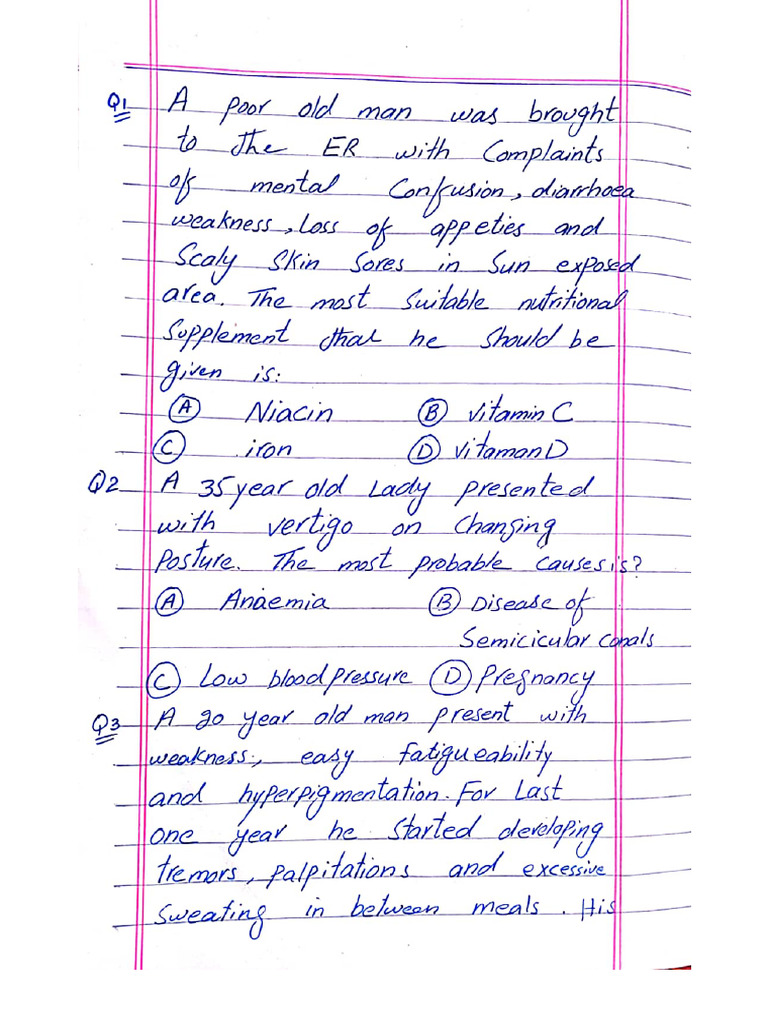 Q1 A poor old man was brought
to the ER with Complaints
of mental Confusion, diarrhoea
weakness, Loss of appeties and
Scaly Skin Sores in Sun exposed
area. The most suitable nutritional
Supplement that he should be
given is:
(A) Niacin (B) vitamin C
(C) iron (D) vitaman D
Q2 A 35 year old Lady presented
with vertigo on Changing
Posture. The most probable causes is?
(A) Anaemia (B) Disease of
Semicicular Canals
(C) Low blood pressure (D) Pregnancy
Q3 A 20 year old man present with
weakness, easy fatigueability
and hyperpigmentation. For Last
one year he started developing
tremors, palpitations and excessive
Sweating in between meals. His